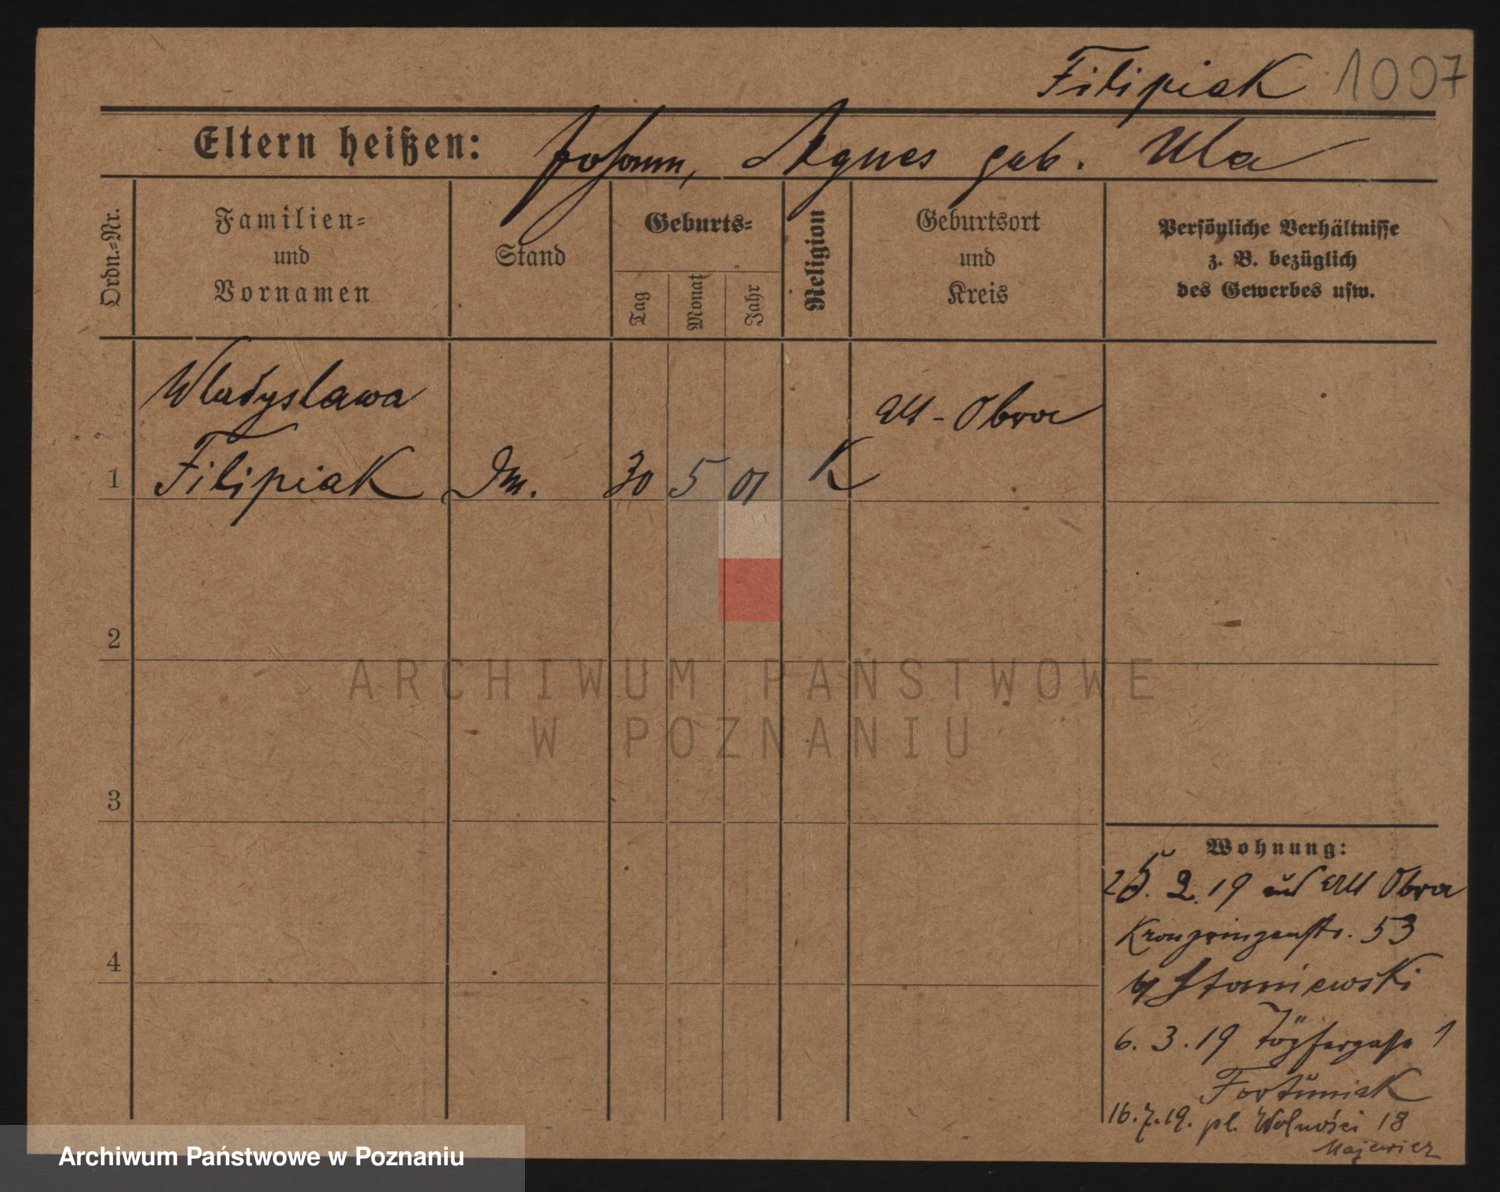 Filipiak 1007
Eltern heißen: Johann, Agnes geb. Ula
Ordn.=Nr.
Familien=
und
Vornamen
Stand
Geburts=
Tag
Monat
Jahr
Religion
Geburtsort
und
Kreis
Persönliche Verhältnisse
z. B. bezüglich
des Gewerbes usw.
Wladyslawa
Alt-Obra
1 Filipiak Dm. 30 5 01 K
2
3
4
ARCHIWUM PAŃSTWOWE
W POZNANIU
Wohnung:
25. 2. 19 aus Alt Obra
Kronprinzenstr. 53
b/ Staniewski
6. 3. 19 Töpfergasse 1
Fortuniak
16.7.19. pl. Wolności 18
Majewicz
Archiwum Państwowe w Poznaniu